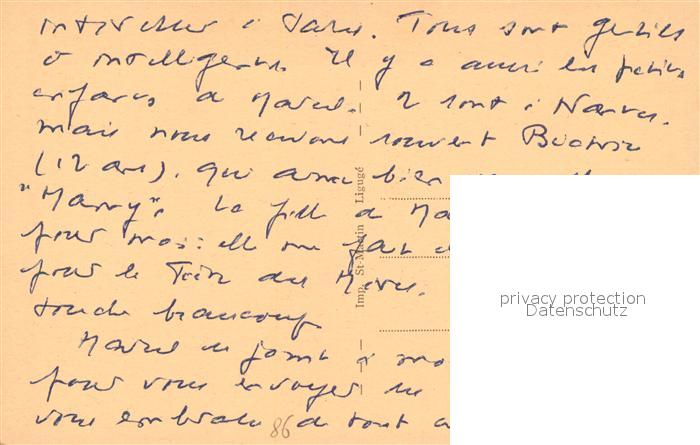 à Paris. Tous sont gentils
& intelligents. Il y a aussi les petits
enfants de Marcel. 2 sont à Nantes.
mais nous recevons souvent Béatrix
(12 ans), qui aime bien
"Mamy". La fille de Ma
pour moi: elle me fait
pour la Fête des Mères.
touche beaucoup
Marcel se joint à mo
pour vous envoyer
vous embrasse de tout
86
Imp. St-Martin Ligugé
privacy protection
Datenschutz